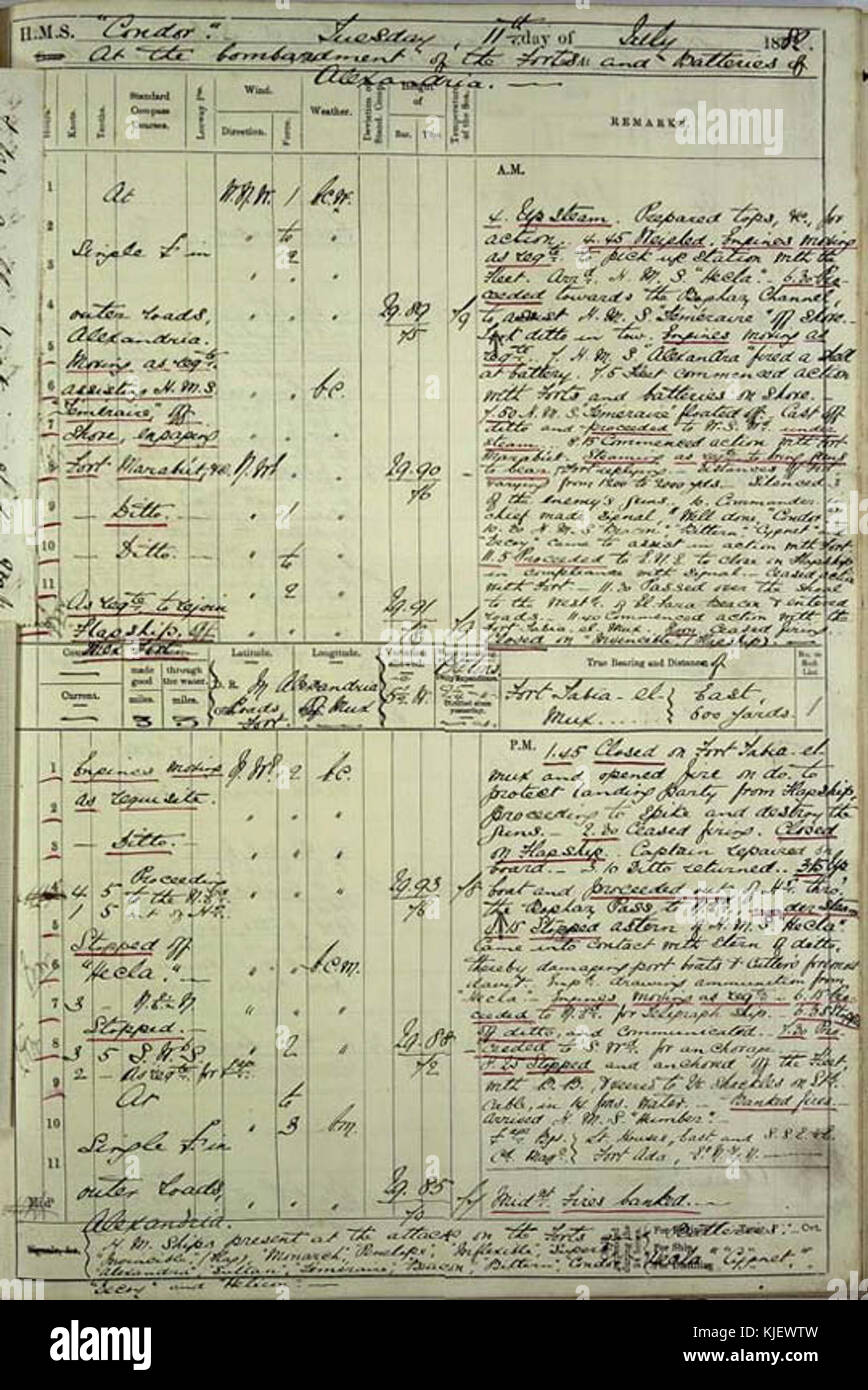 H.M.S. "Condor". Tuesday, 11th day of July 1882.
At the bombardment of the Forts and Batteries of
Alexandria.
Hours
Knots.
Tenths.
Standard Compass Courses.
Leeway
Wind.
Direction.
Force.
Weather.
Deviation of Stand. Comp.
Height of
Bar.
Ther.
Temperature of the Sea.
REMARKS.
A.M.
1 At W.N.W. 1 b.c.w.
2 " to "
3 Single Fr in " 2 "
4 outer roads, " " " 29.89 79
75
5 Alexandria.
Moving as reqte.
6 assisting H.M.S. " " b.c.
"Temeraire" off
7 shore, engaging
8 Fort Marabût, &c. 29.90
76
9 — Ditto. — " 1 "
10 — Ditto. — " to "
11 " 2 "
As reqte to rejoin 29.91
Flagship off
Mex Fort.
4. Up steam. Prepared tops, &c, for
action. 4.45 Weighed. Engines moving
as reqte. to pick up station with the
Fleet. Arrd. H.M.S. "Hecla". 6.30 Pro-
ceeded towards the Boghaz Channel,
to assist H.M.S. "Temeraire" off shore.
Took ditto in tow. Engines moving as
reqte. 7. H.M.S. "Alexandra" fired a shell
at battery. 7.5 Fleet commenced action
with Forts and batteries on shore. —
7.50 H.M.S. "Temeraire" floated off. Cast off
ditto and proceeded to W.S.Wd. under
steam. 8.15 Commenced action with Fort
Marabût. Steaming as reqte to bring guns
to bear, Fort replying — distances off Fort
varying from 1200 to 2000 yds. — Silenced 3
of the Enemy's guns. 10. Commander in
chief made signal "Well done, "Condor".
10.30 H.M.S. "Beacon" "Bittern" "Cygnet"
"Decoy" came to assist in action with Fort
11.5 Proceeded to E.N.E. to close on Flagship
in compliance with signal — Ceased action
with Fort — 11.30 Passed over the shoal
to the Westd. of El Fara Beacon & entered
roads. — 11.40 Commenced action with the
Fort Tabia el Mex. Noon Ceased firing.
Closed on "Invincible" (Flagship). —
Current.
made good
miles.
3
through the water.
miles.
3
Latitude.
Longitude.
D.R.
In Alexandria
Roads
Off Mex
Fort.
Variation allowed.
5½ W.
Distilled since yesterday.
True Bearing and Distance of
Fort Tabia-el-
Mex......
East,
600 yards.
No. on Sick List
1
P.M.
1 Engines moving 2 b.c.
2 as requisite. " " "
3 — Ditto. — " " "
4 4 5 Proceeding to the " " " 29.93 78
1 5 76
5 Stopped off
6 "Hecla." — " " b.c.m.
7 3 — N.E½N " " "
Stopped. —
8 3 5 " 2 " 29.88
2 — As reqte for 72
9 At to
10 3 b.m.
Single Fr in
11
outer roads, " " " 29.85
Midt. Alexandria. 70
1.45 Closed on Fort Tabia-el-
mex and opened fire on do. to
protect landing party from Flagship,
proceeding to spike and destroy the
guns. — 2.30 Ceased firing. Closed
on Flagship. Captain repaired on
board. — 3.10 Ditto returned.. 3.15 Up
boat and proceeded out of Hr. thro'
the Boghaz Pass to under steam
5.15 Stopped astern of H.M.S. "Hecla"
Came into contact with stern of ditto,
thereby damaging port boats & Cutter's foremost
davit. Empd. drawing ammunition from
"Hecla". — Engines moving as reqte. — 6.15 Pro-
ceeded to N.Ed. for Telegraph Ship. — 6.35 Stopped
off ditto, and communicated. — 7.30 Pro-
ceeded to S.Wd. for anchorage. —
8.25 Stopped and anchored off the Fleet,
with B.B. Veered to 2½ shackles on
cable, in 14 fms. water. — Banked fires —
Arrived H.M.S. "Humber".
Lt. Houses, East and
Fort Ada,
Midnt. Fires banked. —
Signals, &c.
H.M. Ships present at the attack, on the Forts and Batteries:
"Invincible" (Flag), "Monarch", "Penelope", "Inflexible", "Superb"
"Alexandra", "Sultan", "Temeraire", "Beacon," "Bittern", "Condor", "Hecla", "Cygnet".
"Decoy" and "Helicon": —
alamy
Image ID: KJEWTW
www.alamy.com